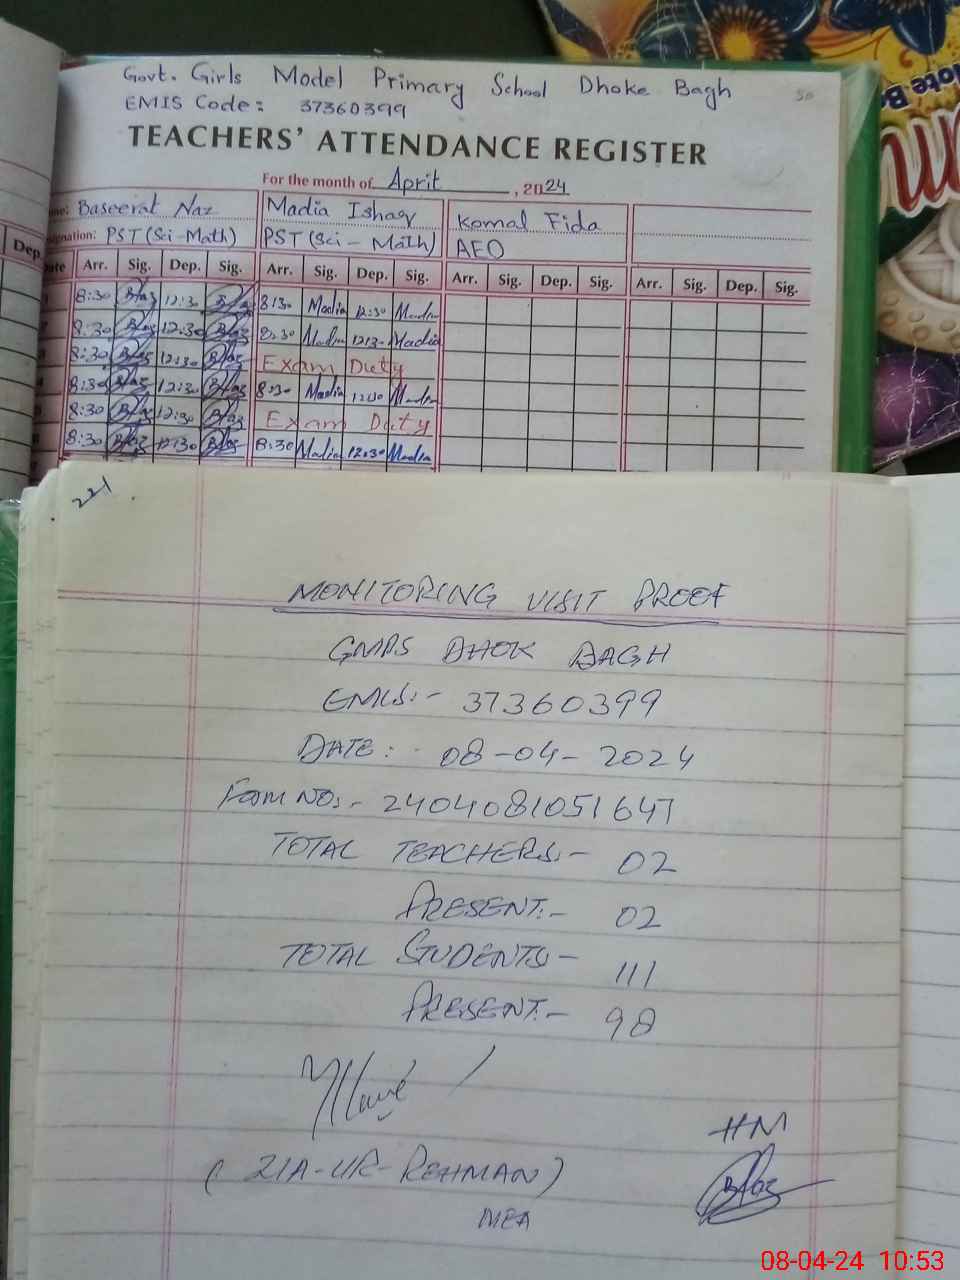 Govt. Girls Model Primary School Dhoke Bagh
EMIS Code: 37360399
50
TEACHERS' ATTENDANCE REGISTER
For the month of April, 2024
Baseerat Naz Madia Ishaq Komal Fida
PST (Sci-Math) PST (Sci-Math) AEO
Dep.
Arr. Sig. Dep. Sig. Arr. Sig. Dep. Sig. Arr. Sig. Dep. Sig. Arr. Sig. Dep. Sig.
8:30 B/az 12:30 B/az 8:30 Madia 12:30 Madia
8:30 B/az 12:30 B/az 8:30 Madia 12:30 Madia
8:30 B/az 12:30 B/az Exam Duty
8:30 B/az 12:30 B/az 8:30 Madia 12:30 Madia
8:30 B/az 12:30 B/az Exam Duty
8:30 B/az 12:30 B/az 8:30 Madia 12:30 Madia
221
MONITORING VISIT PROOF
GMPS DHOK BAGH
EMIS:- 37360399
DATE:- 08-04-2024
Form NO:- 2404081051647
TOTAL TEACHERS:- 02
PRESENT:- 02
TOTAL STUDENTS- 111
PRESENT:- 98
(ZIA-UR-REHMAN)
MEA
HM
B/az
08-04-24 10:53